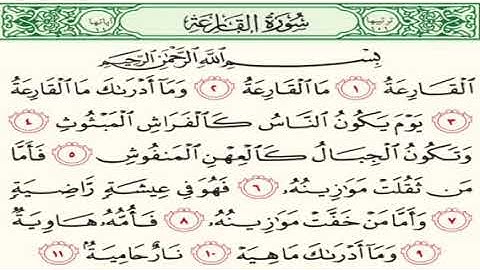 ترتيبها ١٠١ سُورَةُ القَارِعَةِ آياتها ١١
بِسْمِ اللَّهِ الرَّحْمَٰنِ الرَّحِيمِ
ٱلْقَارِعَةُ ١ مَا ٱلْقَارِعَةُ ٢ وَمَآ أَدْرَىٰكَ مَا ٱلْقَارِعَةُ
٣ يَوْمَ يَكُونُ ٱلنَّاسُ كَٱلْفَرَاشِ ٱلْمَبْثُوثِ ٤
وَتَكُونُ ٱلْجِبَالُ كَٱلْعِهْنِ ٱلْمَنفُوشِ ٥ فَأَمَّا
مَن ثَقُلَتْ مَوَٰزِينُهُۥ ٦ فَهُوَ فِى عِيشَةٍ رَّاضِيَةٍ
٧ وَأَمَّا مَنْ خَفَّتْ مَوَٰزِينُهُۥ ٨ فَأُمُّهُۥ هَاوِيَةٌ
٩ وَمَآ أَدْرَىٰكَ مَا هِيَهْ ١٠ نَارٌ حَامِيَةٌۢ ١١